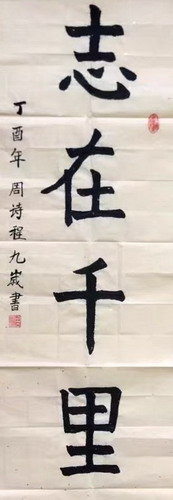 志在千里
丁酉年 周诗程九歲書